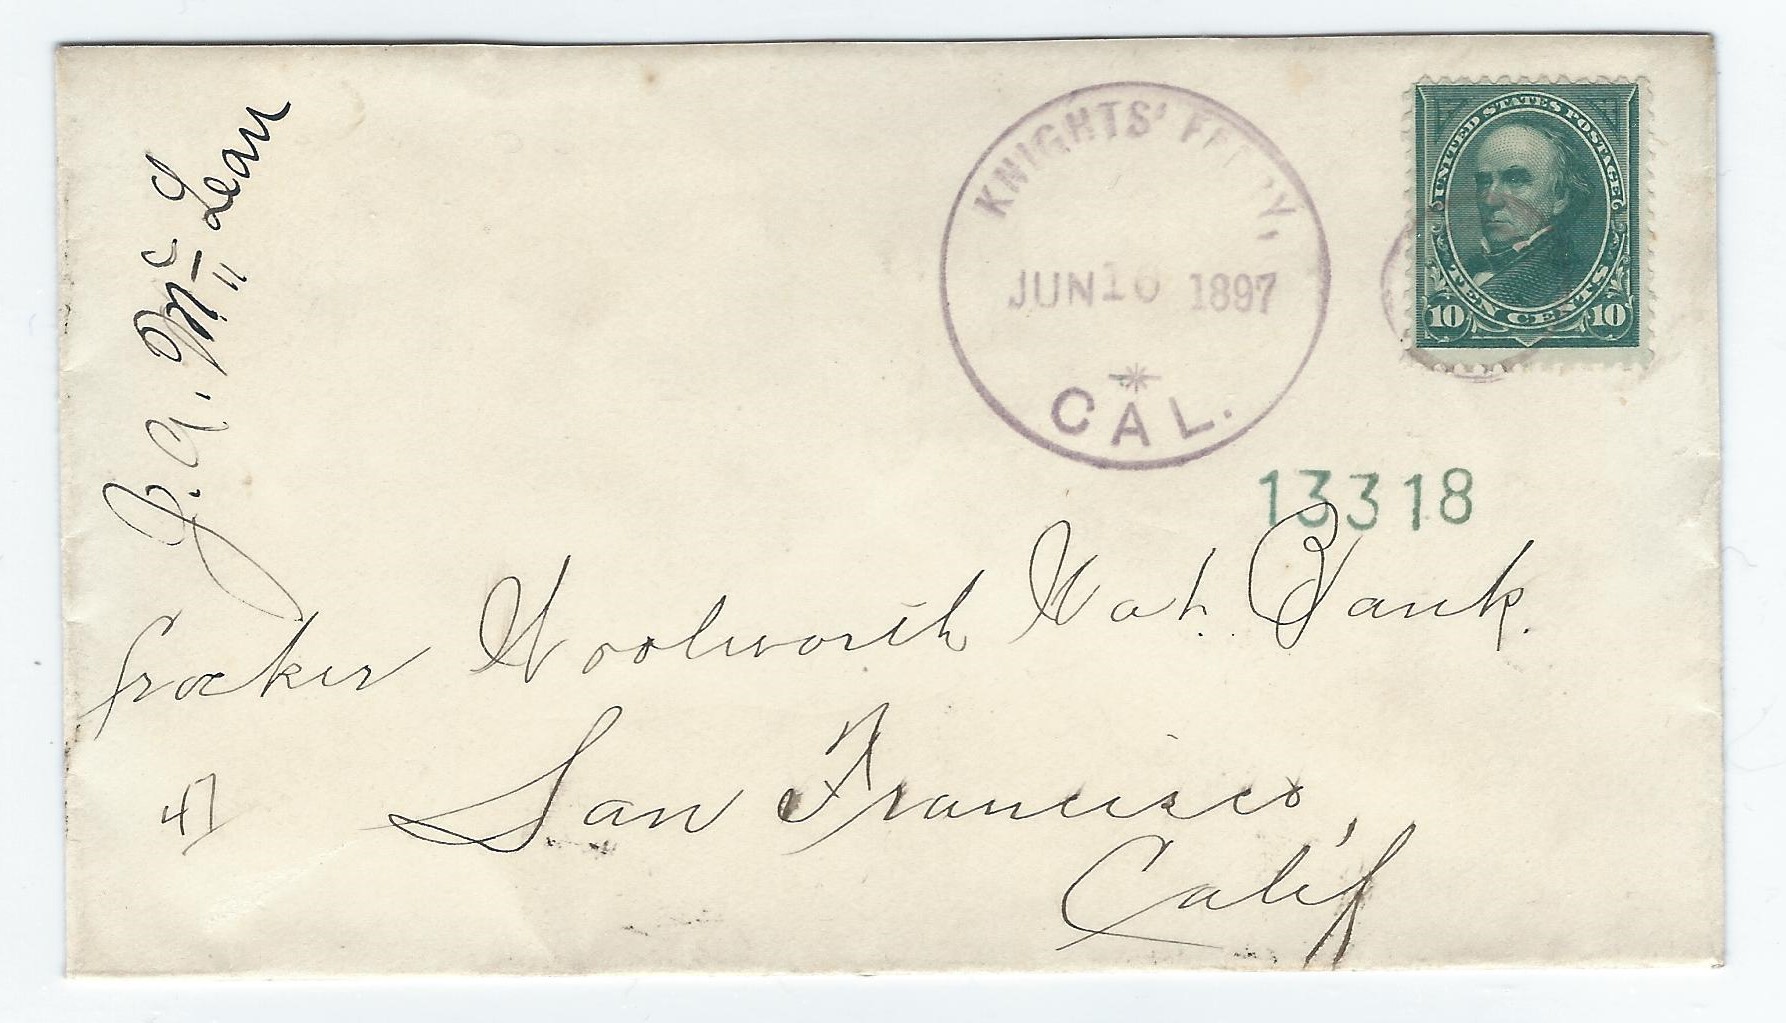 J. A. McLean
KNIGHTS' FERRY,
JUN 16 1897
CAL.
UNITED STATES POSTAGE
TEN CENTS
10 10
13318
Crocker Woolworth Nat. Bank.
San Francisco,
Calif
47